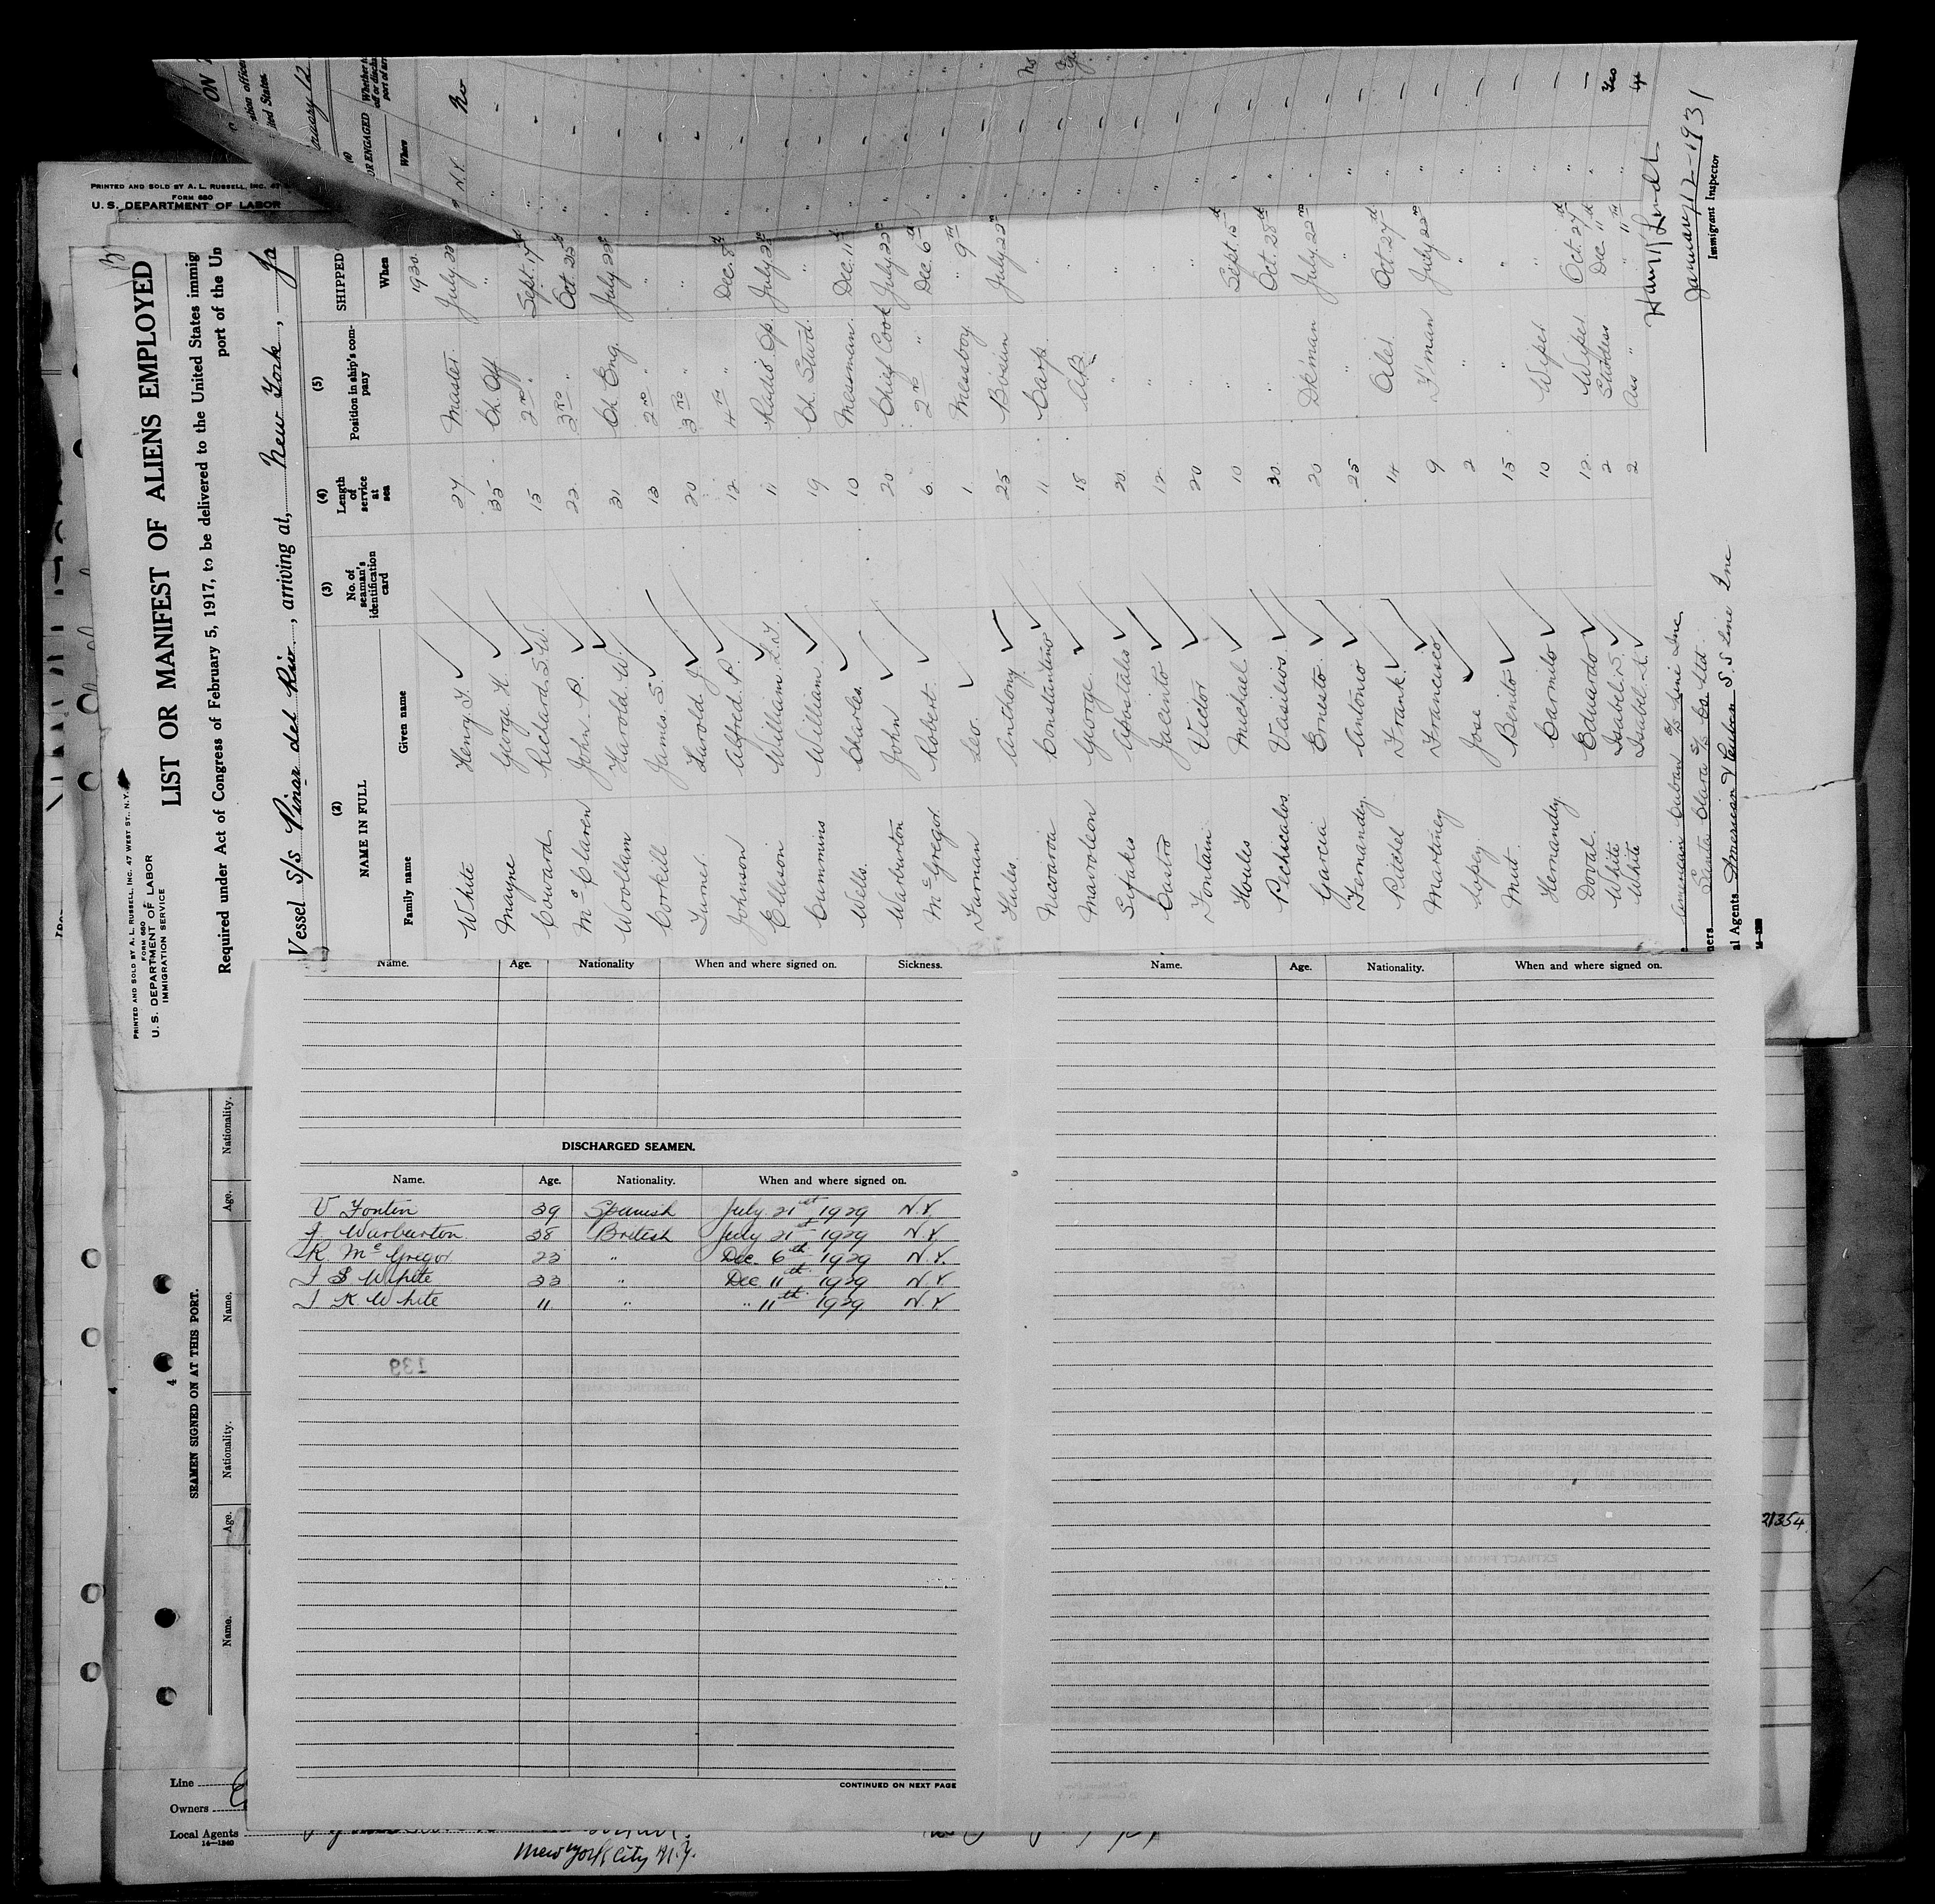 PRINTED AND SOLD BY A. L. RUSSELL, INC. 47
FORM 680
U. S. DEPARTMENT OF LABOR
PRINTED AND SOLD BY A. L. RUSSELL, INC. 47 WEST ST., N.Y.
FORM 680
U. S. DEPARTMENT OF LABOR
IMMIGRATION SERVICE
LIST OR MANIFEST OF ALIENS EMPLOYED
ON
Required under Act of Congress of February 5, 1917, to be delivered to the United States immig
port of the Un
Vessel S/s Pinar del Rio, arriving at, New York,
(2) (3) (4) (5)
NAME IN FULL No. of seaman's identification card Length of service at sea Position in ship's company SHIPPED OR ENGAGED
Family name Given name When Where
1930
White Henry T. 27 Master July 22 N.Y. No
Mayne George H. 35 Ch. Off "
Coward Richard S.W. 15 2nd " Sept. 17
McClaren John P. 22 3rd " Oct. 25
Woollam Harold W. 31 Ch Eng. July 22
Corkill James S. 13 2nd " "
Turner Harold J. 20 3rd " "
Johnson Alfred P. 12 4th " Dec. 8th
Ellison William L.T. 11 Radio Op. July 22
Cummins William 19 Ch. Stwd. "
Wells Charles 10 Messman Dec. 11th
Warburton John 20 Chief Cook July 22
McGregor Robert 6 2nd " Dec. 6th
Farnan Leo 1 Messboy " 9th
Hules Anthony 25 Bosun July 22
Nicoaroa Constantino 11 Carp. "
Mavroleon George 18 AB "
Sifakis Apostalis 20 " "
Castro Jacinto 12 " "
Fontain Victor 20 " "
Houles Michael 10 " Sept. 15
Pichicalos Vasilios 30 " Oct. 28
Garcia Ernesto 20 Dkman July 22
Fernandez Antonio 25 " "
Piichel Frank 14 Oiler Oct. 27
Martinez Francisco 9 F'man July 22
Lopez Jose 2 " "
Mut Benito 15 " "
Hernandez Carmilo 10 Wiper "
Doval Eduardo 12 Wiper Oct. 27
White Isabel S. 2 Stwdess Dec. 11th Yes
White Isabel K. 2 Ass " " 11th
American Cuban S/S Line Inc
ners Santa Clara S/S Co Ltd.
al Agents American & Cuban S.S Line Inc
January 12-1931
Immigrant Inspector
Name. Age. Nationality When and where signed on. Sickness.
Name. Age. Nationality. When and where signed on.
DISCHARGED SEAMEN.
Name. Age. Nationality. When and where signed on.
V Fontin 39 Spanish July 21st 1929 N.Y.
J Warburton 38 British July 21st 1929 N.Y
R McGregor 23 " Dec. 6th 1929 N.Y.
I S White 33 " Dec 11th 1929 N.Y
I K White 11 " " 11th 1929 N.Y
139
CONTINUED ON NEXT PAGE
SEAMEN SIGNED ON AT THIS PORT.
4
Name. Age. Nationality. Name. Age. Nationality.
21354
Line
Owners
Local Agents
14-1240
New York City N.Y.